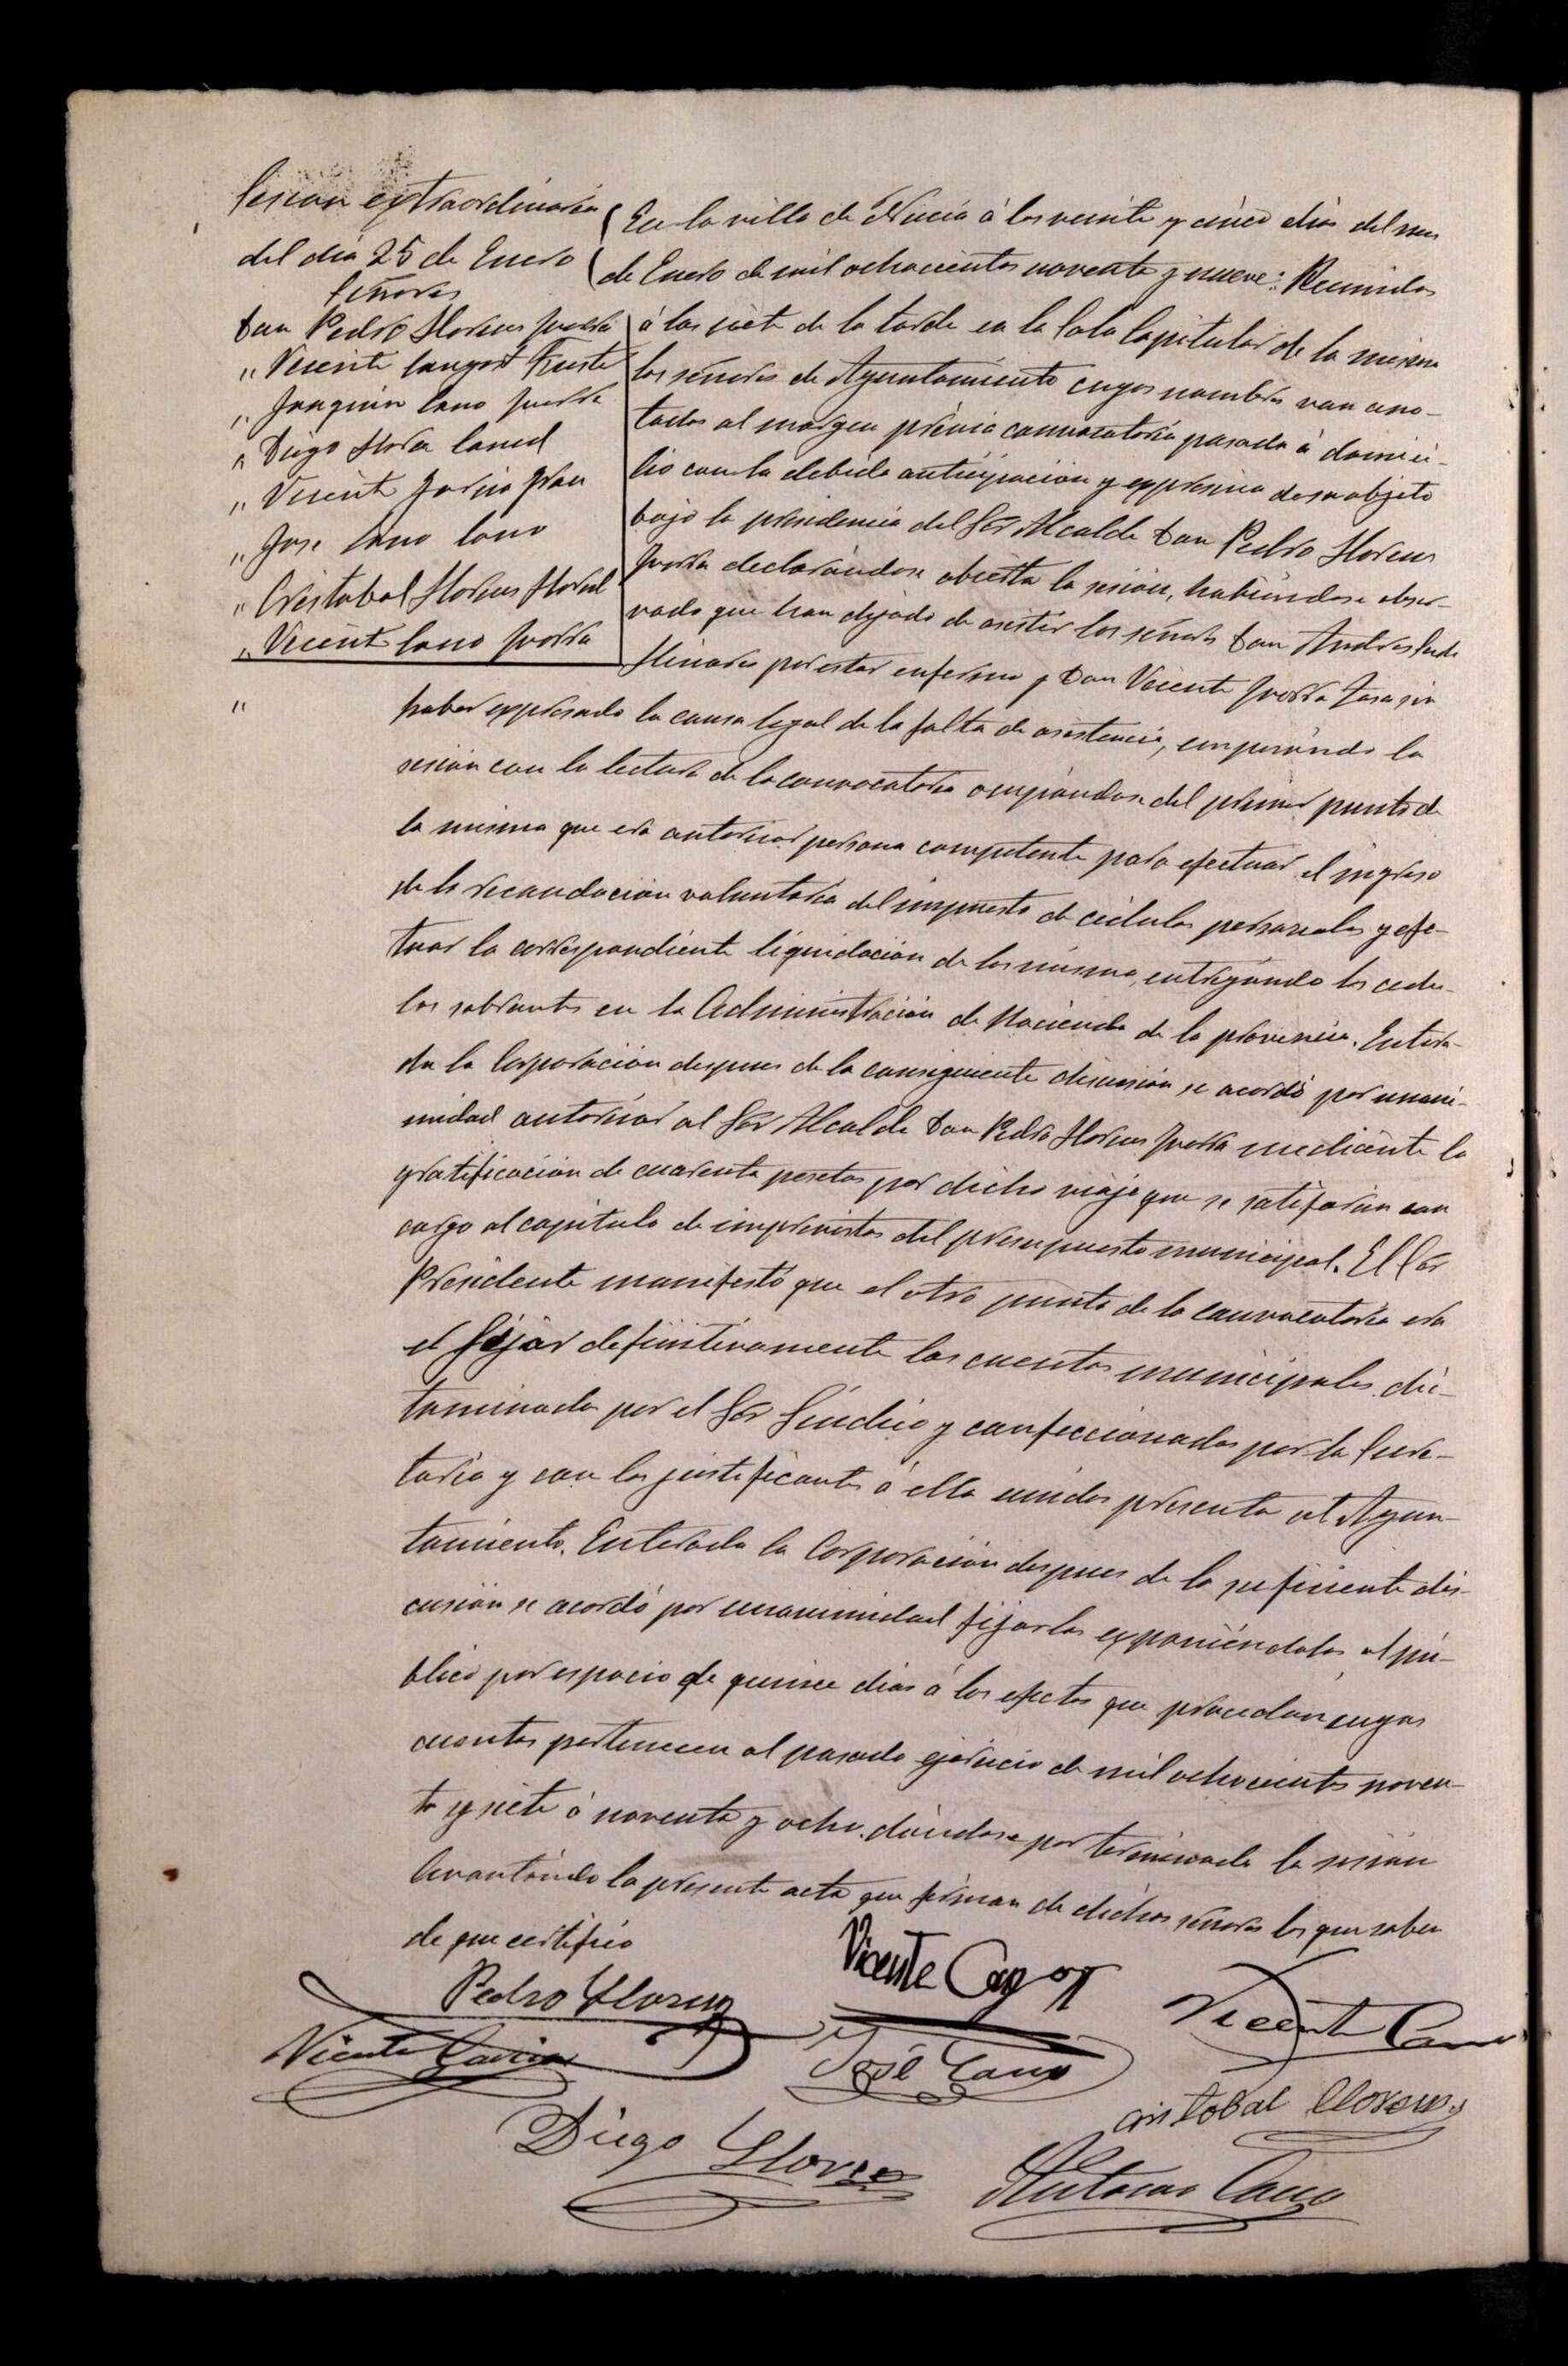 Sesion extraordinaria
del dia 25 de Enero
Señores
Don Pedro Llorens Ivorra
" Vicente Cangost Fuster
" Joaquin Cano Ivorra
" Diego Llorca
" Vicente Garcia Grau
" Jose Cano Cano
" Cristobal Llorens Llorens
" Vicente Cano Ivorra
En la villa de Nucia á los veinte y cinco dias del mes
de Enero de mil ochocientos noventa y nueve: Reunidos
á las siete de la tarde en la Sala Capitular de la misma
los señores de Ayuntamiento cuyos nombres van ano-
tados al margen prévia convocatoria pasada á domici-
lio con la debida anticipacion y expresiva de su objeto
bajo la presidencia del Sor Alcalde Don Pedro Llorens
Ivorra declarándose abierta la sesion, habiéndose obser-
vado que han dejado de asistir los señores Don Andres
Llinares por estar enfermo y Don Vicente Ivorra sin
"
haber expresado la causa legal de la falta de asistencia, empezando la
sesion con la lectura de la convocatoria ocupándose del primer punto de
la misma que era autorizar persona competente para efectuar el ingreso
de la recaudacion voluntaria del impuesto de cédulas personales y efec-
tuar la correspondiente liquidacion de las mismas, entregando las cedu-
las sobrantes en la Administracion de Hacienda de la provincia. Entera-
da la Corporacion despues de la consiguiente discusion se acordó por unani-
midad autorizar al Sor Alcalde Don Pedro Llorens Ivorra mediante la
gratificacion de cuarenta pesetas por dicho viaje que se satisfarán con
cargo al capitulo de imprevistos del presupuesto municipal. El Sor
Presidente manifestó que el otro punto de la convocatoria era
el fijar definitivamente las cuentas municipales dic-
taminadas por el Sor Sindico y confeccionadas por la Secre-
taria y con los justificantes á ella unidos presenta al Ayun-
tamiento. Enterada la Corporacion despues de la suficiente dis-
cusion se acordó por unanimidad fijarlas exponiéndolas al pú-
blico por espacio de quince dias á los efectos que procedan cuyas
cuentas pertenecen al pasado ejercicio de mil ochocientos noven-
ta y siete á noventa y ocho. dándose por terminada la sesion
levantándo la presente acta que firman de dichos señores los que saben
de que certifico
Pedro Llorens
Vicente Cangost
Vicente Cano
Vicente Garcia
José Cano
Cristobal Llorens
Diego Llorca
Antonio Cano